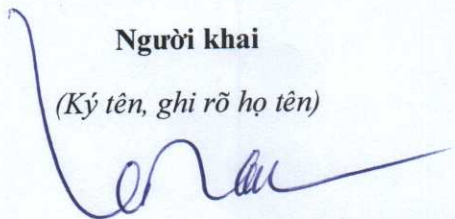 Người khai
(Ký tên, ghi rõ họ tên)